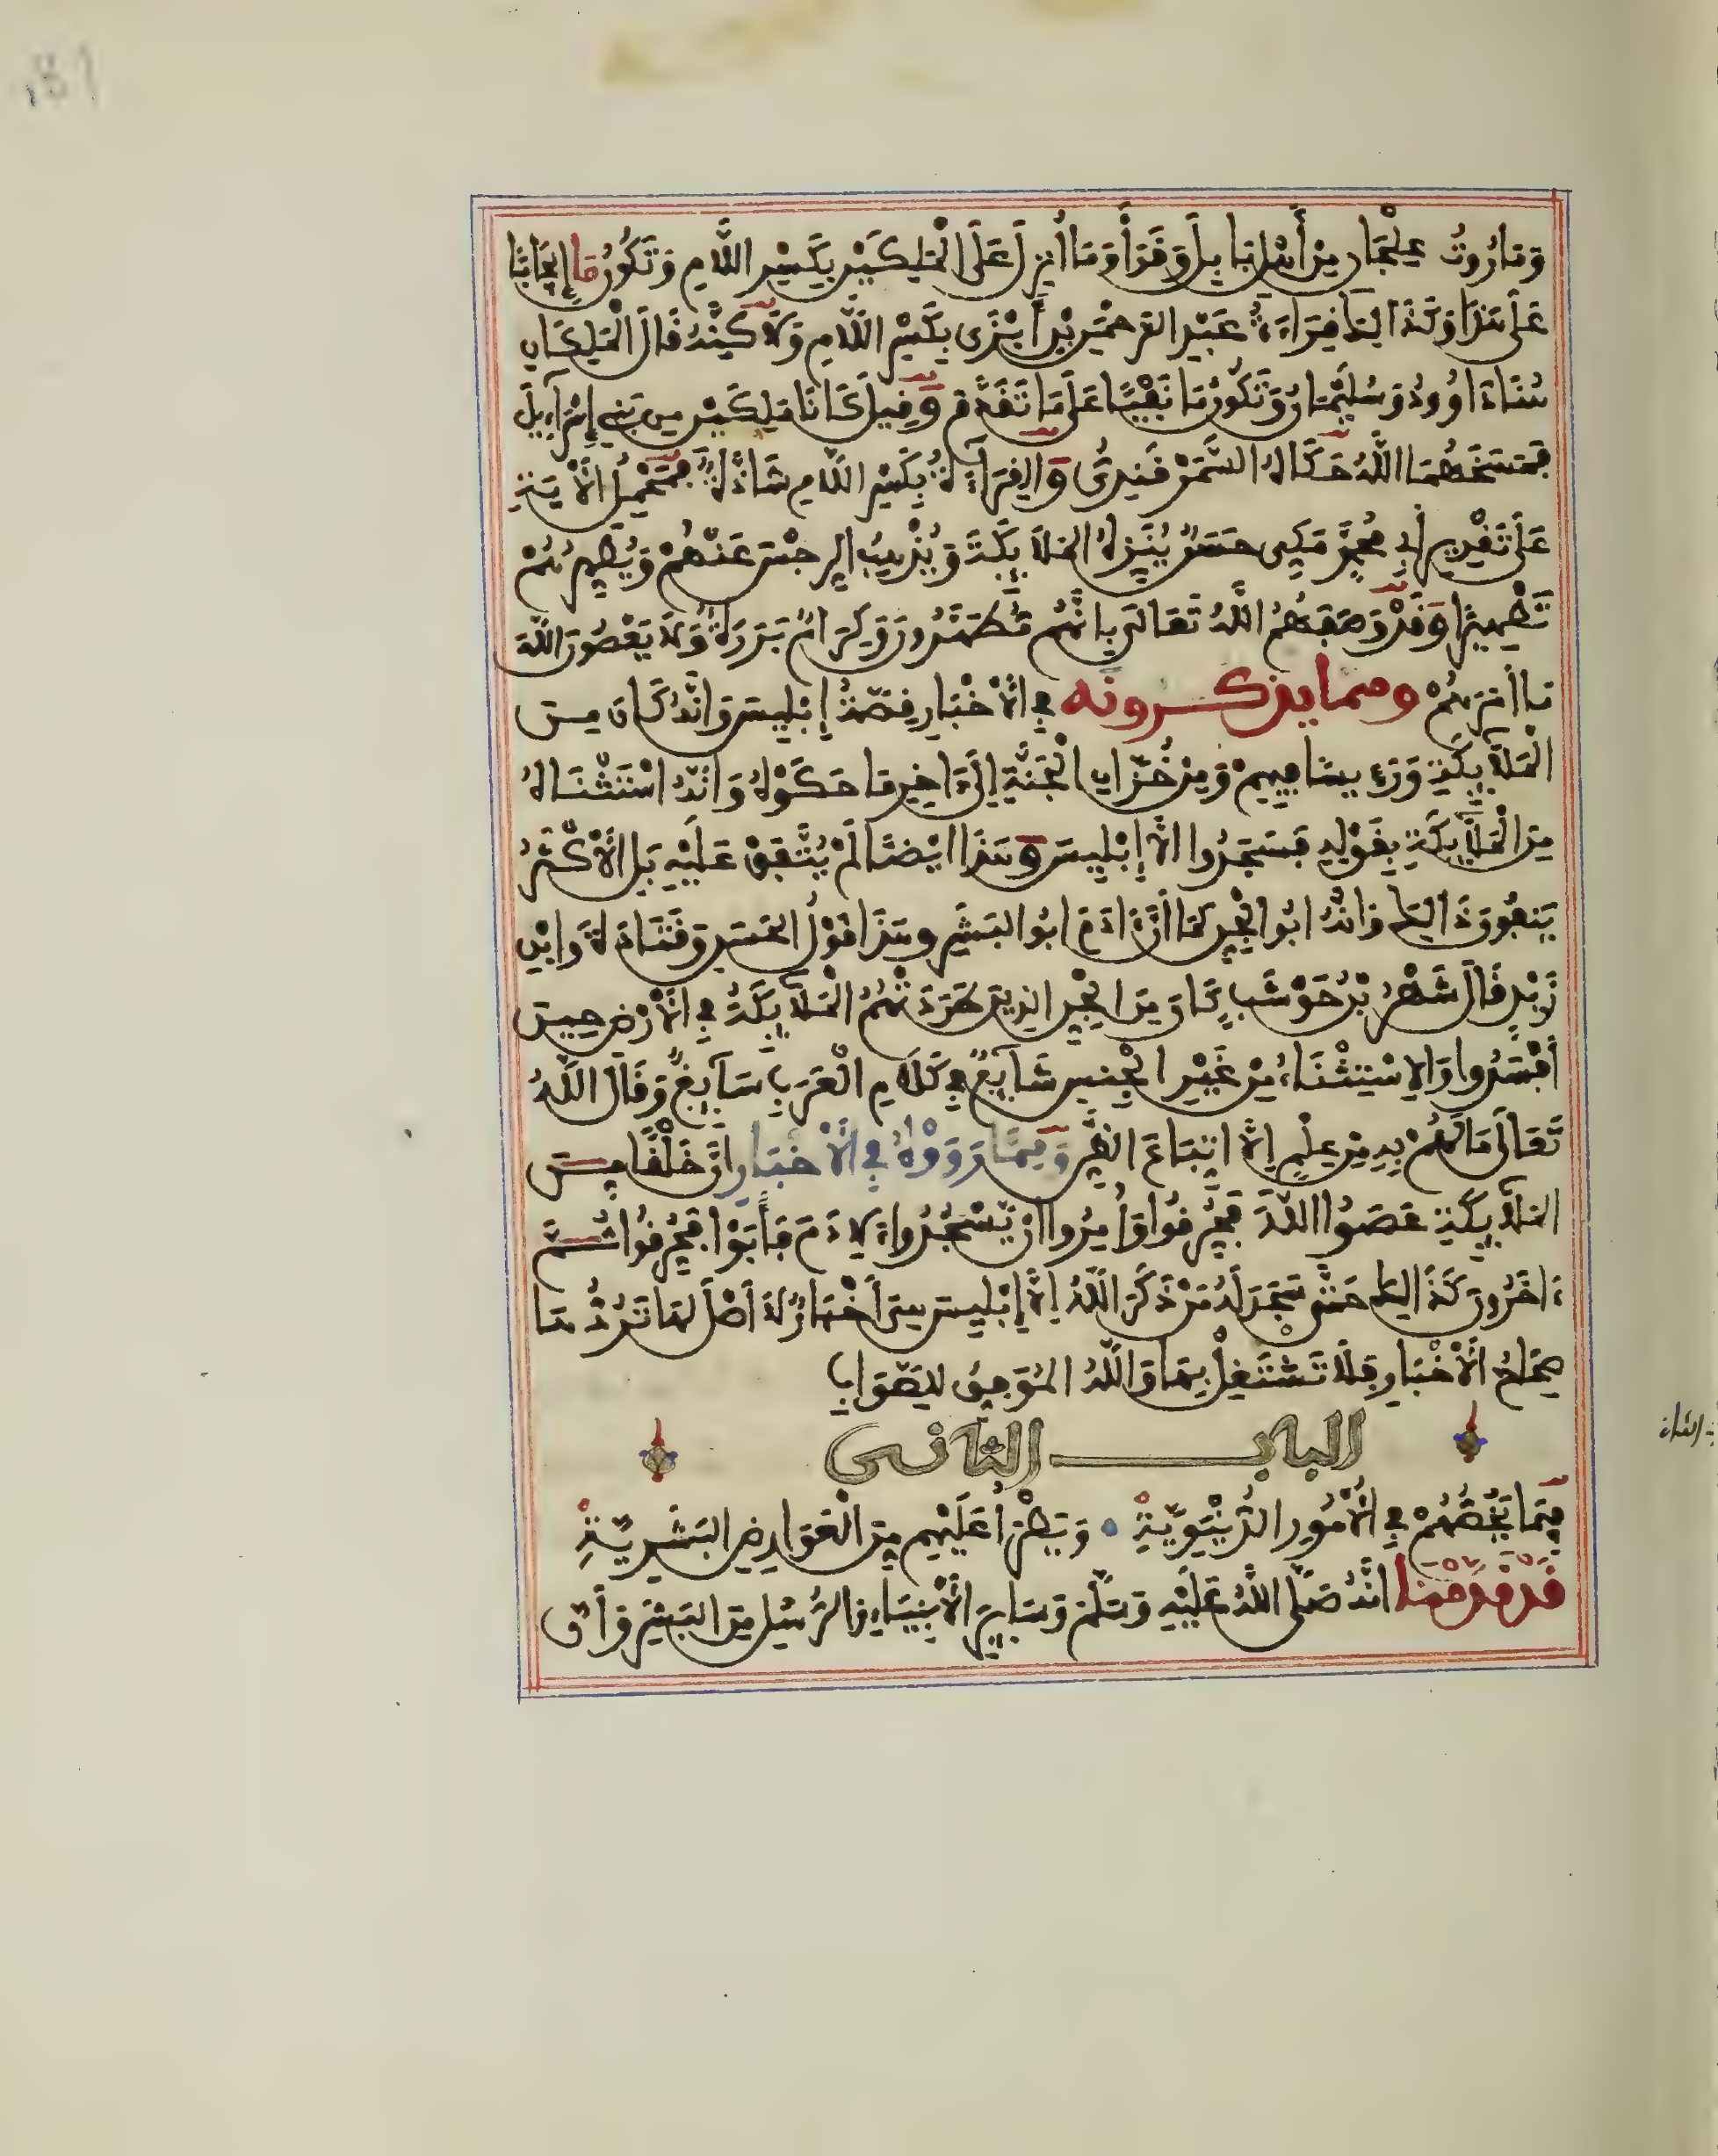 وَمَارُوتُ عِلْجَانِ مِنْ أَهْلِ بَابِلَ وَقَرَأَ وَمَا أُنزِلَ عَلَى الْمَلِكَيْنِ بِكَسْرِ اللَّامِ وَتَكُونُ مَا إِيجَابًا
عَلَى هَذَا وَكَذَالِكَ قِرَاءَةُ عَبْدِ الرَّحْمَنِ بْنِ أَبْزَى بِكَسْرِ اللَّامِ وَلَاكِنَّهُ قَالَ الْمَلِكَانِ
هُنَا دَاوُودُ وَسُلَيْمَانُ وَتَكُونُ مَا نَفْيًا عَلَى مَا تَقَدَّمَ وَقِيلَ كَانَا مَلِكَيْنِ مِن بَنِي إِسْرَآءِيلَ
فَمَسَخَهُمَا اللَّهُ حَكَاهُ السَّمَرْقَنْدِيُّ وَالْقِرَاءَةُ بِكَسْرِ اللَّامِ شَاذَّةٌ فَمَحْمِلُ الْآيَةِ
عَلَى تَقْدِيرِ أَبِي مُحَمَّدٍ مَكِّي حَسَنٌ يُنَزِّهُ الْمَلَائِكَةَ وَيُذْهِبُ الرِّجْسَ عَنْهُمْ وَيُطَهِّرُهُمْ
تَطْهِيرًا وَقَدْ وَصَفَهُمُ اللَّهُ تَعَالَى بِأَنَّهُم مُّطَهَّرُونَ وَكِرَامٌ بَرَرَةٌ وَلَا يَعْصُونَ اللَّهَ
مَا أَمَرَهُمْ ومما يذكرونه فِي الْأَخْبَارِ قِصَّةُ إِبْلِيسَ وَأَنَّهُ كَانَ مِنَ
الْمَلَائِكَةِ وَرَئِيسًا فِيهِمْ وَمِنْ خُزَّانِ الْجَنَّةِ إِلَى ءَاخِرِ مَا حَكَوْهُ وَأَنَّهُ اسْتَثْنَاهُ
مِنَ الْمَلَائِكَةِ بِقَوْلِهِ فَسَجَدُوا إِلَّا إِبْلِيسَ وَهَذَا أَيْضًا لَمْ يُتَّفَقْ عَلَيْهِ بَلِ الْأَكْثَرُ
يَنفُونَ ذَالِكَ وَأَنَّهُ أَبُو الْجِنِّ كَمَا أَنَّ ءَادَمَ أَبُو الْبَشَرِ وَهَذَا قَوْلُ الْحَسَنِ وَقَتَادَةَ وَابْنِ
زَيْدٍ قَالَ شَهْرُ بْنُ حَوْشَبٍ كَانَ مِنَ الْجِنِّ الَّذِينَ طَرَدَتْهُمُ الْمَلَائِكَةُ فِي الْأَرْضِ حِينَ
أَفْسَدُوا وَالِاسْتِثْنَاءُ مِنْ غَيْرِ الْجِنسِ شَائِعٌ فِي كَلَامِ الْعَرَبِ سَائِغٌ وَقَالَ اللَّهُ
تَعَالَى مَا لَهُمْ بِهِ مِنْ عِلْمٍ إِلَّا اتِّبَاعَ الظَّنِّ وَمِمَّا رَوَوْهُ فِي الْأَخْبَارِ أَنَّ خَلْقًا مِنَ
الْمَلَائِكَةِ عَصَوُا اللَّهَ فَحُرِّقُوا وَأُمِرُوا أَنْ يَّسْجُدُوا لِآدَمَ فَأَبَوْا فَحُرِّقُوا ثُمَّ
ءَاخَرُونَ كَذَالِكَ حَتَّى سَجَدَ لَهُ مَنْ ذَكَرَ اللَّهُ إِلَّا إِبْلِيسَ فِي أَخْبَارٍ لَا أَصْلَ لَهَا تَرُدُّهَا
صِحَاحُ الْأَخْبَارِ فَلَا تَشْتَغِلْ بِهَا وَاللَّهُ الْمُوَفِّقُ لِلصَّوَابِ
الباب الثاني
فِيمَا يَخُصُّهُمْ فِي الْأُمُورِ الدُّنْيَوِيَّةِ وَيَطْرَأُ عَلَيْهِم مِنَ الْعَوَارِضِ الْبَشَرِيَّةِ
قَدْ قَدَّمْنَا أَنَّهُ صَلَّى اللَّهُ عَلَيْهِ وَسَلَّمَ وَسَائِرَ الْأَنْبِيَاءِ وَالرُّسُلِ مِنَ الْبَشَرِ وَأَنَّ